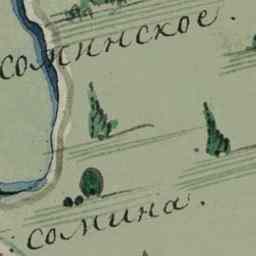 соминское.
сомина.